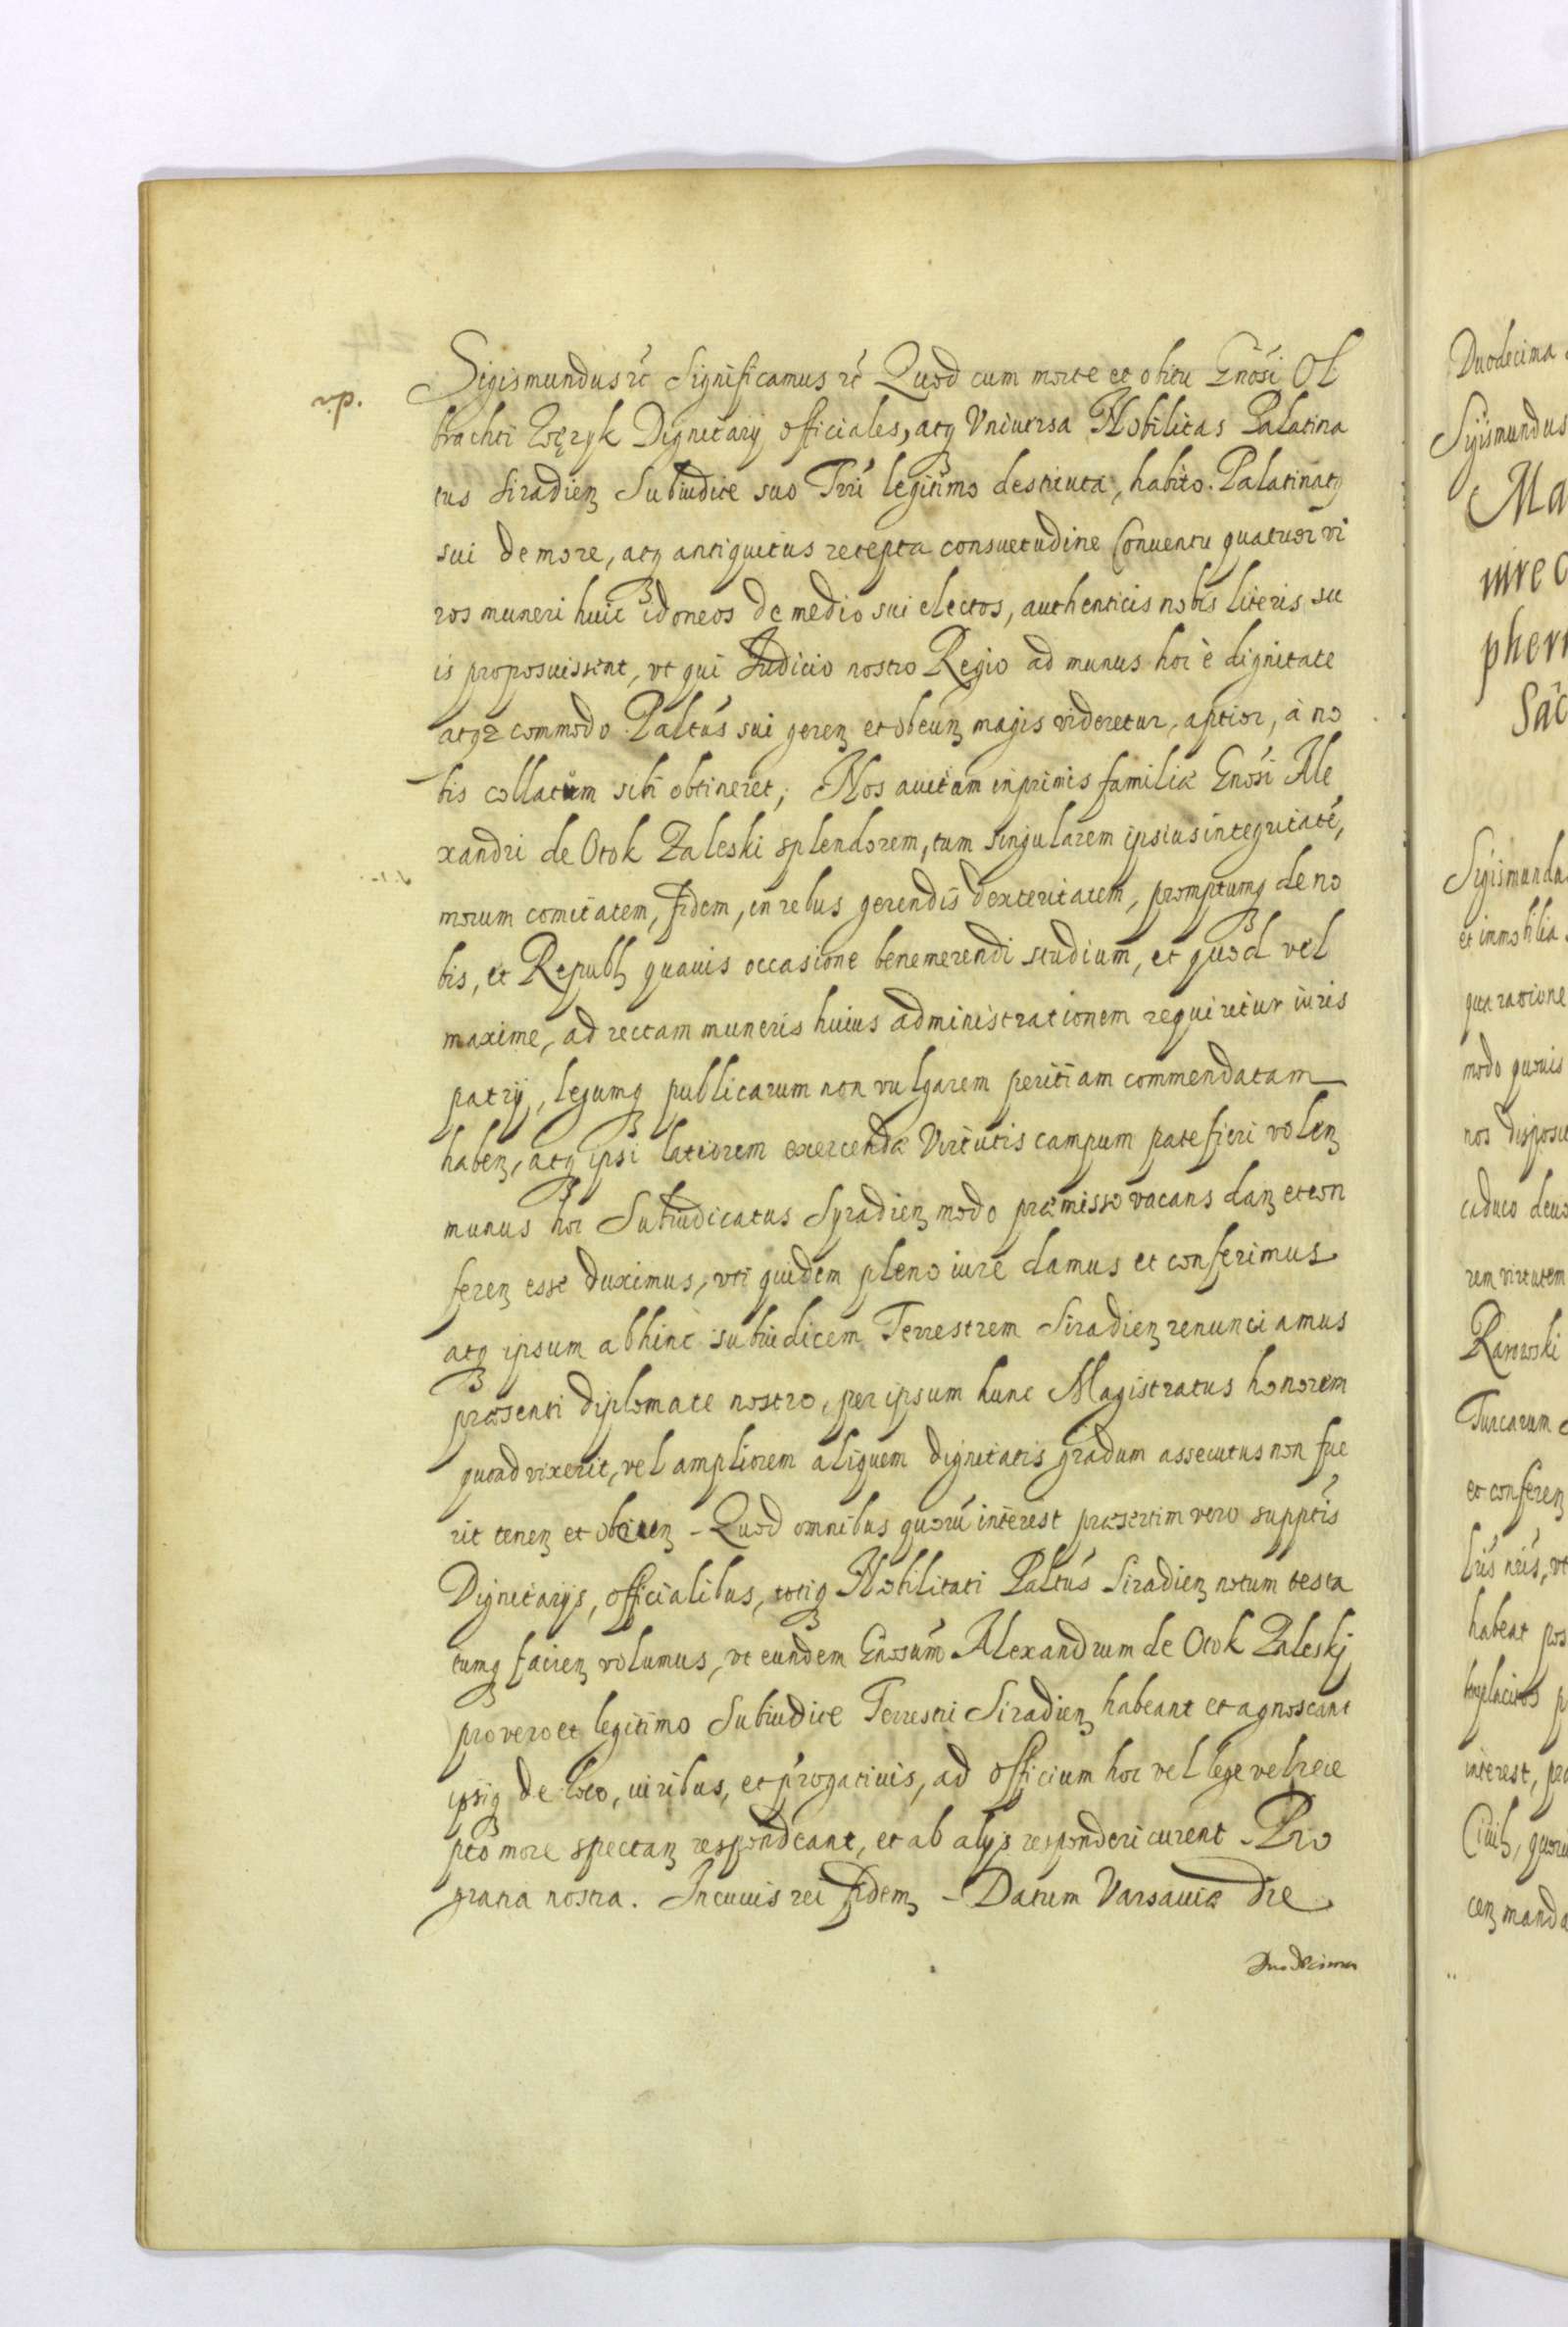 Sigismundus etc Significamus etc Quod cum morte et obitu Gnosi Ol
brachti Wężyk Dignitarij officiales, atq Vniuersa Nobilitas Palatina
tus Siradien Subiudice suo Trri legitimo destituta, habito Palatinatq
sui de more, atq antiquitus recepta consuetudine Conuentu quatuor vi
ros muneri huic idoneos de medio sui electos, authenticis nobis literis su
is proposuissent, vt qui Iudicio nostro Regio ad munus hoc è dignitate
atqz commodo Paltús sui geren et obeun magis videretur aptior, à no
bis collatum sibi obtineret; Nos auitum inprimis familiæ Gnosi Ale
xandri de Otok Zaleski splendorem, tum singularem ipsius integritaté,
morum comitatem, fidem, in rebus gerendis dexteritatem, promptumq de no
bis, et Republ quauis occasione benemerendi studium, et quod vel
maxime, ad rectam muneris huius administrationem requiritur iuris
patrij, legumq publicarum non vulgarem peritiam commendatam
haben, atq ipsi latiorem exercendæ Virtutis campum patefieri volen
munus hoc Subiudicatus Syradien modo præmisso vacans dan et con
feren esse duximus, vti quidem pleno iure damus et conferimus
atq ipsum abhinc subiudicem Terrestrem Siradien renunciamus
præsenti diplomate nostro, per ipsum hunc Magistratus honorem
quoad vixerit, vel ampliorem aliquem dignitatis gradum assecutus non fue
rit tenen et obeun - Quod omnibus quorú interest præsertim vero supptis
Dignitarijs, officialibus, totiq Nobilitati Paltús Siradien notum testa
tumq facien volumus, vt eundem Gnosum Alexandrum de Otok Zaleskj
pro vero et legitimo Subiudice Terrestri Siradien habeant et agnoscant
ipsiq de loco, iuribus, et progatiuis, ad officium hoc vel lege vel rece
pto more spectan respondeant, et ab alijs responderi curent - Pro
gratia nostra. In cuius rei fidem - Datum Varsauiæ die
Duodecima
Duodecima
Sigismundus
Ma
pher
Sigismundus
et immobilia
qua ratione
modo quouis
nos disposu
caduco deuo
rem virtutem
Rarowski
Turcarum
et conferen
habeat pos
interest, præ
Ciuil, quoru
cen manda